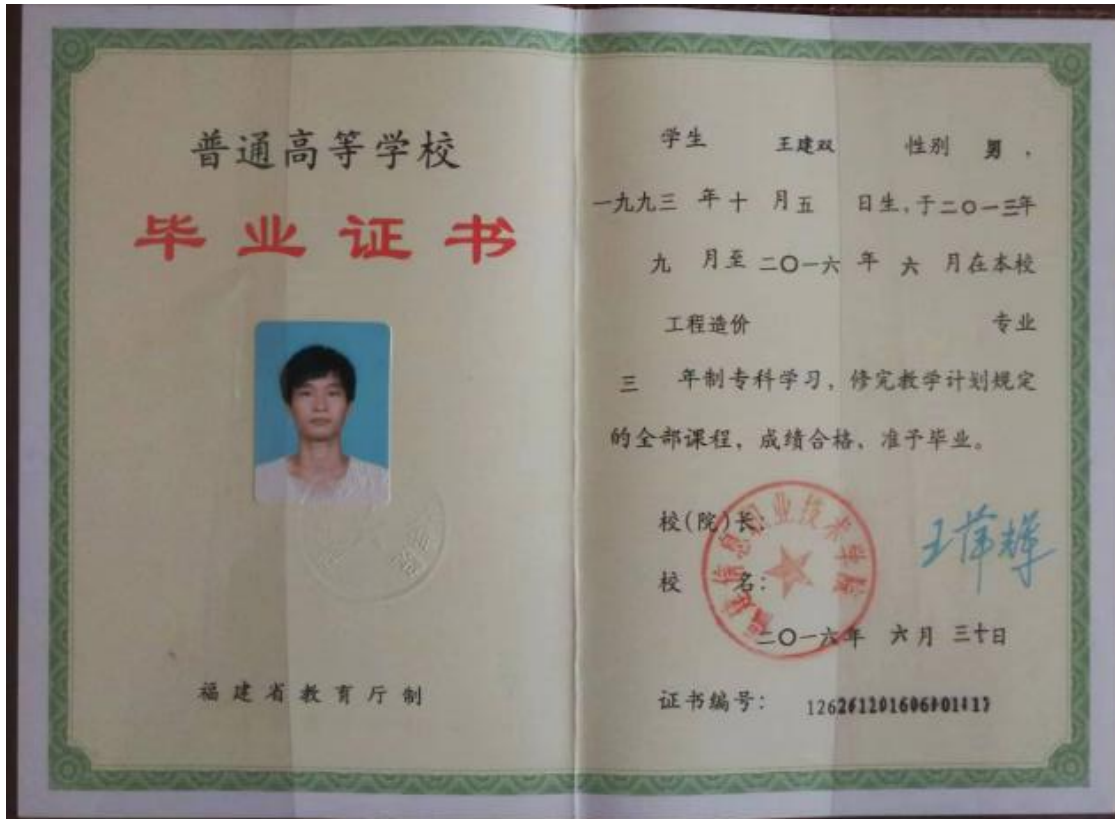 普通高等学校
毕业证书
福建省教育厅制
学生 王建双 性别 男，
一九九三 年 十 月 五 日生，于二〇一三年
九 月至 二〇一六 年 六 月在本校
工程造价 专业
三 年制专科学习，修完教学计划规定
的全部课程，成绩合格，准予毕业。
校(院)长：
校 名：
福建信息职业技术学院
二〇一六年 六月 三十日
证书编号：